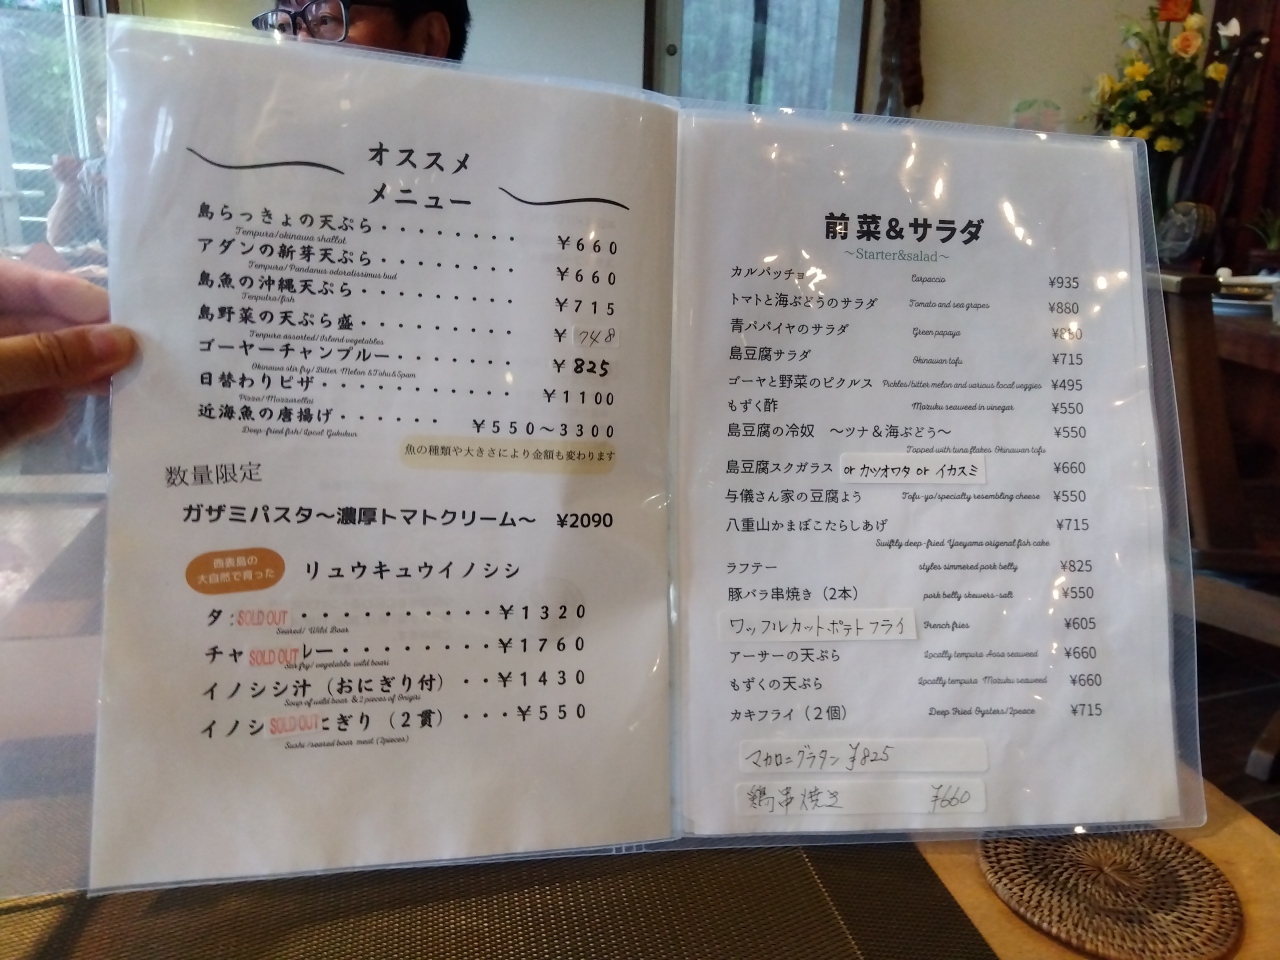 オススメ
メニュー
島らっきょの天ぷら・・・・・・・・ ¥660
Tempura/okinawa shallot
アダンの新芽天ぷら・・・・・・・・ ¥660
Tempura/Pandanus odoratissimus bud
島魚の沖縄天ぷら・・・・・・・・・ ¥715
島野菜の天ぷら盛・・・・・・・・・ ¥748
Tenpura assorted/Island vegetables
ゴーヤーチャンプルー・・・・・・・ ¥825
Okinawa stir fry/Bitter Melon &Tofu&Spam
日替わりピザ・・・・・・・・・・・ ¥1100
近海魚の唐揚げ・・・・・ ¥550〜3300
Deep-fried fish/Local Gukukun
魚の種類や大きさにより金額も変わります
数量限定
ガザミパスタ〜濃厚トマトクリーム〜 ¥2090
西表島の
大自然で育った
リュウキュウイノシシ
タ SOLD OUT ・・・・・・・・・・¥1320
Seared/ Wild Boar
チャ SOLD OUT レー・・・・・・・・¥1760
Stir fry/ vegetable wild boar
イノシシ汁（おにぎり付）・・¥1430
Soup of wild boar &2 pieces of Onigiri
イノシ SOLD OUT にぎり（２貫）・・・¥550
Sushi/seared boar meat (2pieces)
前菜&サラダ
〜Starter&salad〜
カルパッチョ Carpaccio ¥935
トマトと海ぶどうのサラダ Tomato and sea grapes ¥880
青パパイヤのサラダ Green papaya
島豆腐サラダ Okinawan tofu ¥715
ゴーヤと野菜のピクルス Pickles/bitter melon and various local veggies ¥495
もずく酢 Mozuku seaweed in vinegar ¥550
島豆腐の冷奴　〜ツナ＆海ぶどう〜 ¥550
Topped with tuna flakes Okinawan tofu
島豆腐スクガラス or カツオワタ or イカスミ ¥660
与儀さん家の豆腐よう Tofu-yo/specialty resembling cheese ¥550
八重山かまぼこたらしあげ ¥715
Swiftly deep-fried Yaeyama origenal fish cake
ラフテー styles simmered pork belly ¥825
豚バラ串焼き（2本） pork belly skewers-salt ¥550
ワッフルカットポテトフライ French fries ¥605
アーサーの天ぷら Locally tempura Aosa seaweed ¥660
もずくの天ぷら Locally tempura Mozuku seaweed ¥660
カキフライ（２個） Deep Fried Oysters/2peace ¥715
マカロニグラタン ¥825
鶏串焼き ¥660